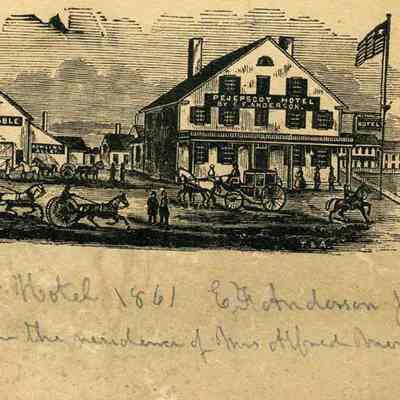 PEJEPSCOT HOTEL
BY E. F. ANDERSON.
HOTEL
Hotel 1861 E. F. Anderson
the residence of Mrs Alfred